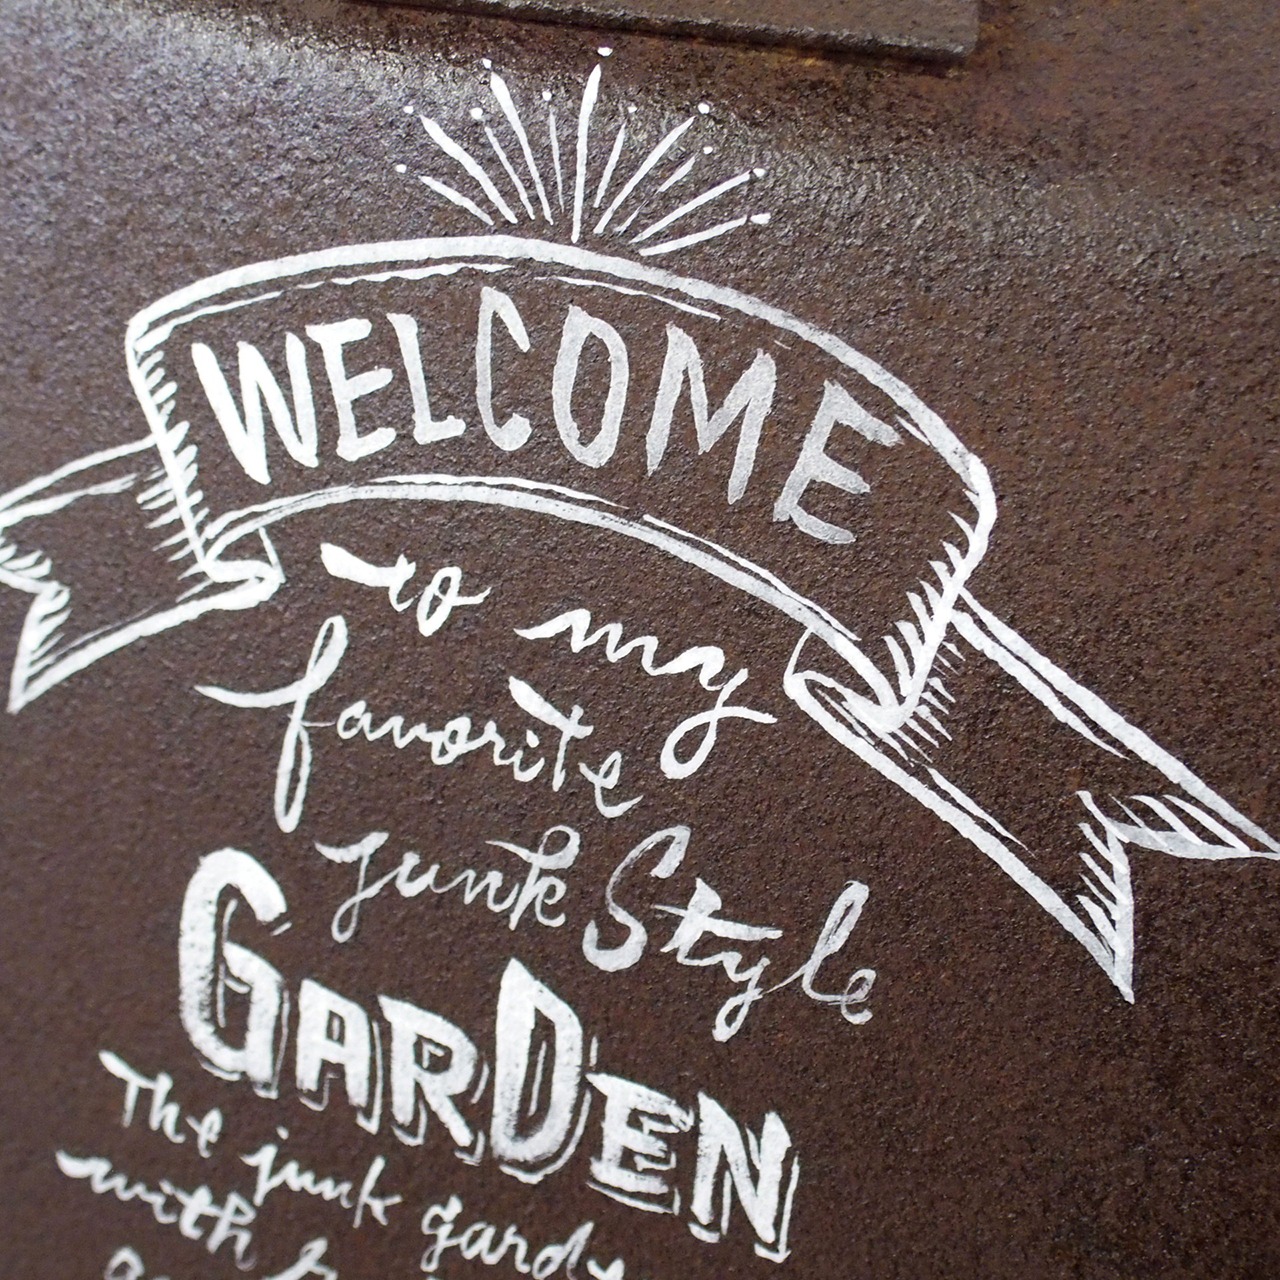 WELCOME
to my
favorite
junk Style
GARDEN
The junk
with